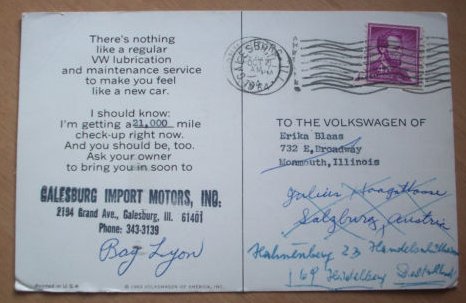 There's nothing
like a regular
VW lubrication
and maintenance service
to make you feel
like a new car.
I should know:
I'm getting a 21,000 mile
check-up right now.
And you should be, too.
Ask your owner
to bring you in soon to
GALESBURG IMPORT MOTORS, INC.
2194 Grand Ave., Galesburg, Ill. 61401
Phone: 343-3139
Bag Lyon
Printed in U.S.A.
© 1963 VOLKSWAGEN OF AMERICA, INC.
GALESBURG, ILL
OCT
PM
TO THE VOLKSWAGEN OF
Erika Blaas
732 E. Broadway
Monmouth, Illinois
Salzburg, Austria
23
169 Heidelberg